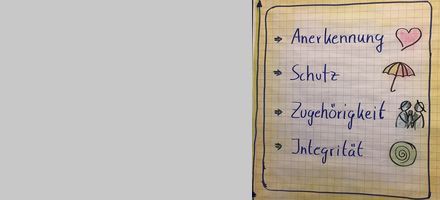 → Anerkennung
→ Schutz
→ Zugehörigkeit
→ Integrität